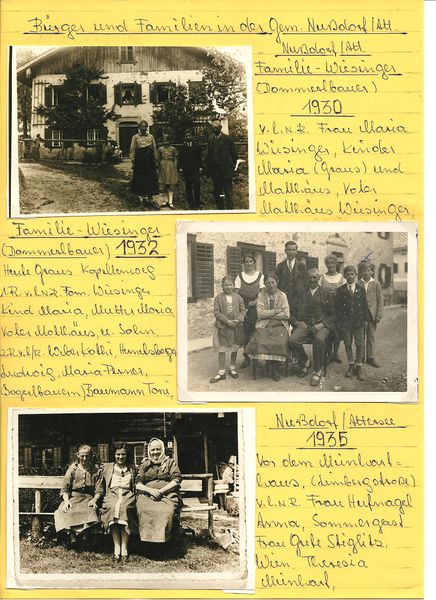 Bürger und Familien in der Gem. Nußdorf/Att.
Nußdorf/Att.
Familie-Wiesinger
(Dommerlbauer)
1930
v.l.n.R. Frau Maria
Wiesinger, Kinder
Maria (Graus) und
Matthäus, Vater
Matthäus Wiesinger
Familie-Wiesinger
(Dommerlbauer) 1932
Heute Graus Kapellenweg
1R.v.l.n.R. Fam. Wiesinger
Kind Maria, Mutter Maria
Vater Matthäus, u. Sohn,
2R.v.l.R.
Ludwig, Maria Perner,
Baumann Toni
Nußdorf/Attersee
1935
Vor dem Meinhart=
haus,
v.l.n.R. Frau Hufnagel
Anna, Sommergast
Frau Grete Stiglitz,
Wien, Theresia
Meinhart,